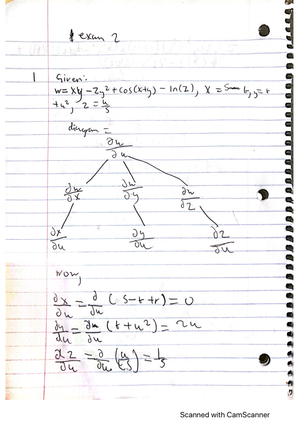 exam 2
1 Given:
w = xy - 2y² + cos(x+y) - ln(z), x = s t, y = t
+ u², z = u/s
diagram =
∂w/∂u
∂w/∂x ∂w/∂y ∂w/∂z
∂x/∂u ∂y/∂u ∂z/∂u
now,
∂x/∂u = ∂/∂u (s-t+r) = 0
∂y/∂u = ∂/∂u (t + u²) = 2u
∂z/∂u = ∂/∂u (u/s) = 1/s
Scanned with CamScanner